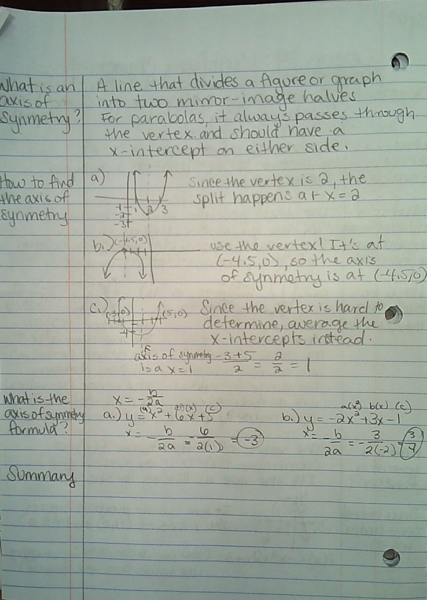 What is an axis of symmetry?
A line that divides a figure or graph
into two mirror-image halves
For parabolas, it always passes through
the vertex and should have a
x-intercept on either side.
How to find the axis of symmetry
a)
-1
-2
-3
1 2 3
Since the vertex is 2, the
split happens at x = 2
b.) (-4.5,0)
use the vertex! It's at
(-4.5,0), so the axis
of symmetry is at (-4.5,0)
c.) (-3,0) (5,0)
Since the vertex is hard to
determine, average the
x-intercepts instead.
axis of symmetry -3+5/2 = 2/2 = 1
is a x=1
What is the axis of symmetry formula?
x = -b/2a
a.) y = x² + 6x + 5
(a) (b)(x) (c)
x = -b/2a = -6/2(1) = -3
b.) y = -2x² + 3x - 1
a(x²) b(x) (c)
x = -b/2a = -3/2(-2) = 3/4
Summary